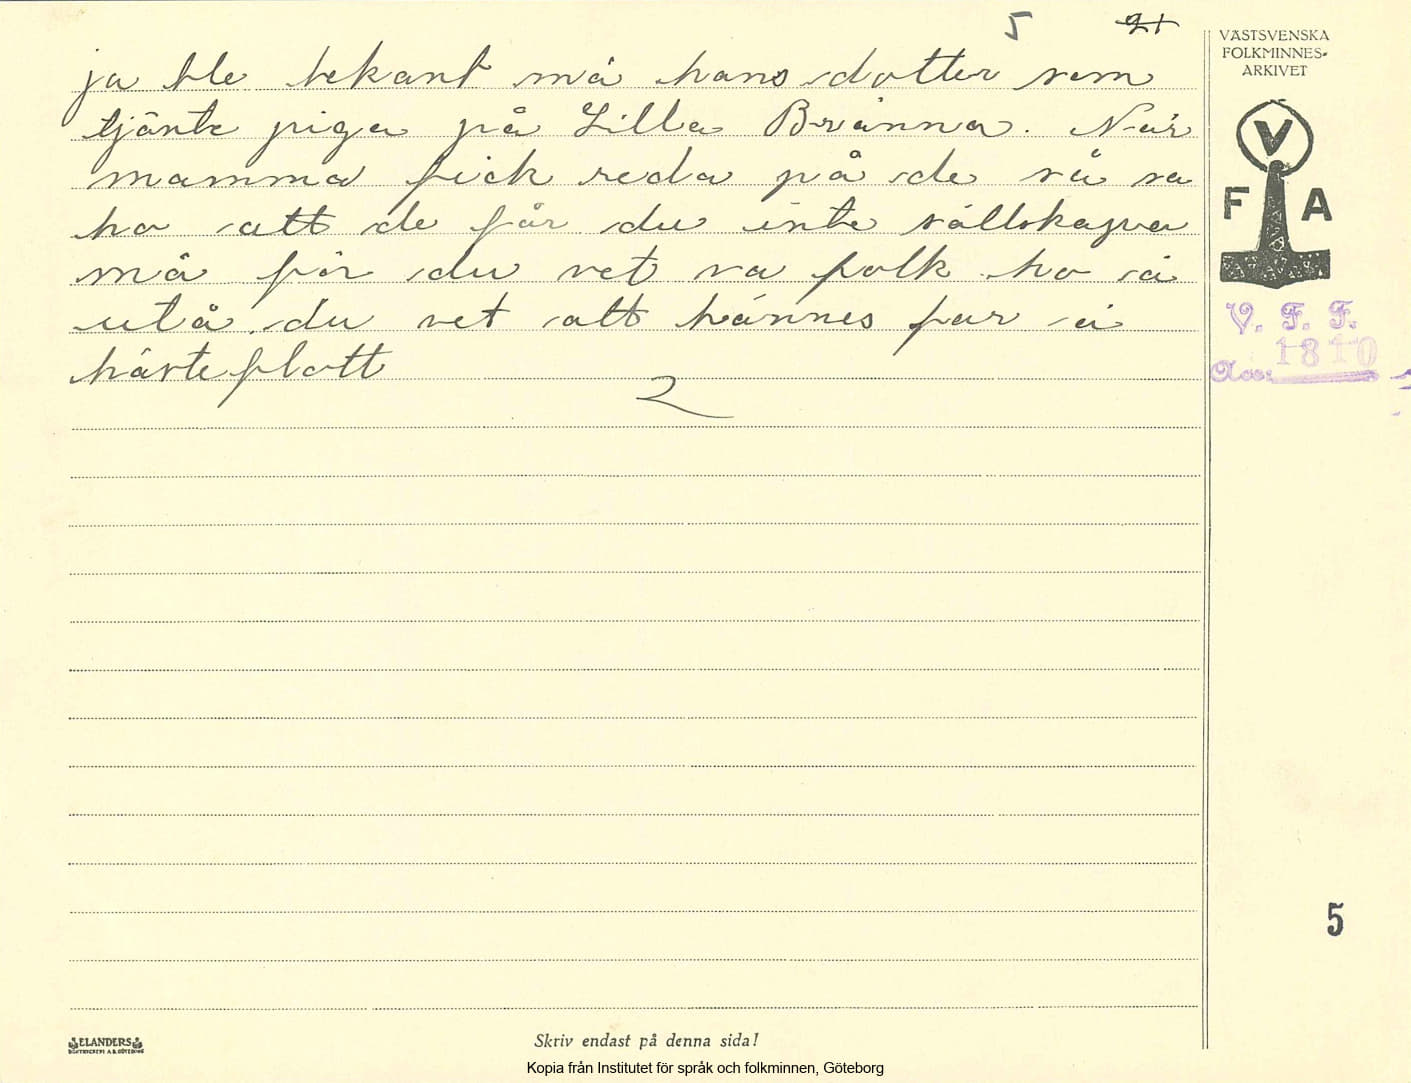 5 21
VÄSTSVENSKA
FOLKMINNES-
ARKIVET
ja ble bekant må hans dotter som
tjänte piga på Lilla Bränna. När
mamma fick reda på de så sa
ho att de får du inte sällskapa
må för du vet va folk ho ä
utå. du vet att hännes far ä
hästeflott
2
V
F A
V. F. F.
Acc: 1810
5
ELANDERS
BOKTRYCKERI A.B. GÖTEBORG
Skriv endast på denna sida!
Kopia från Institutet för språk och folkminnen, Göteborg